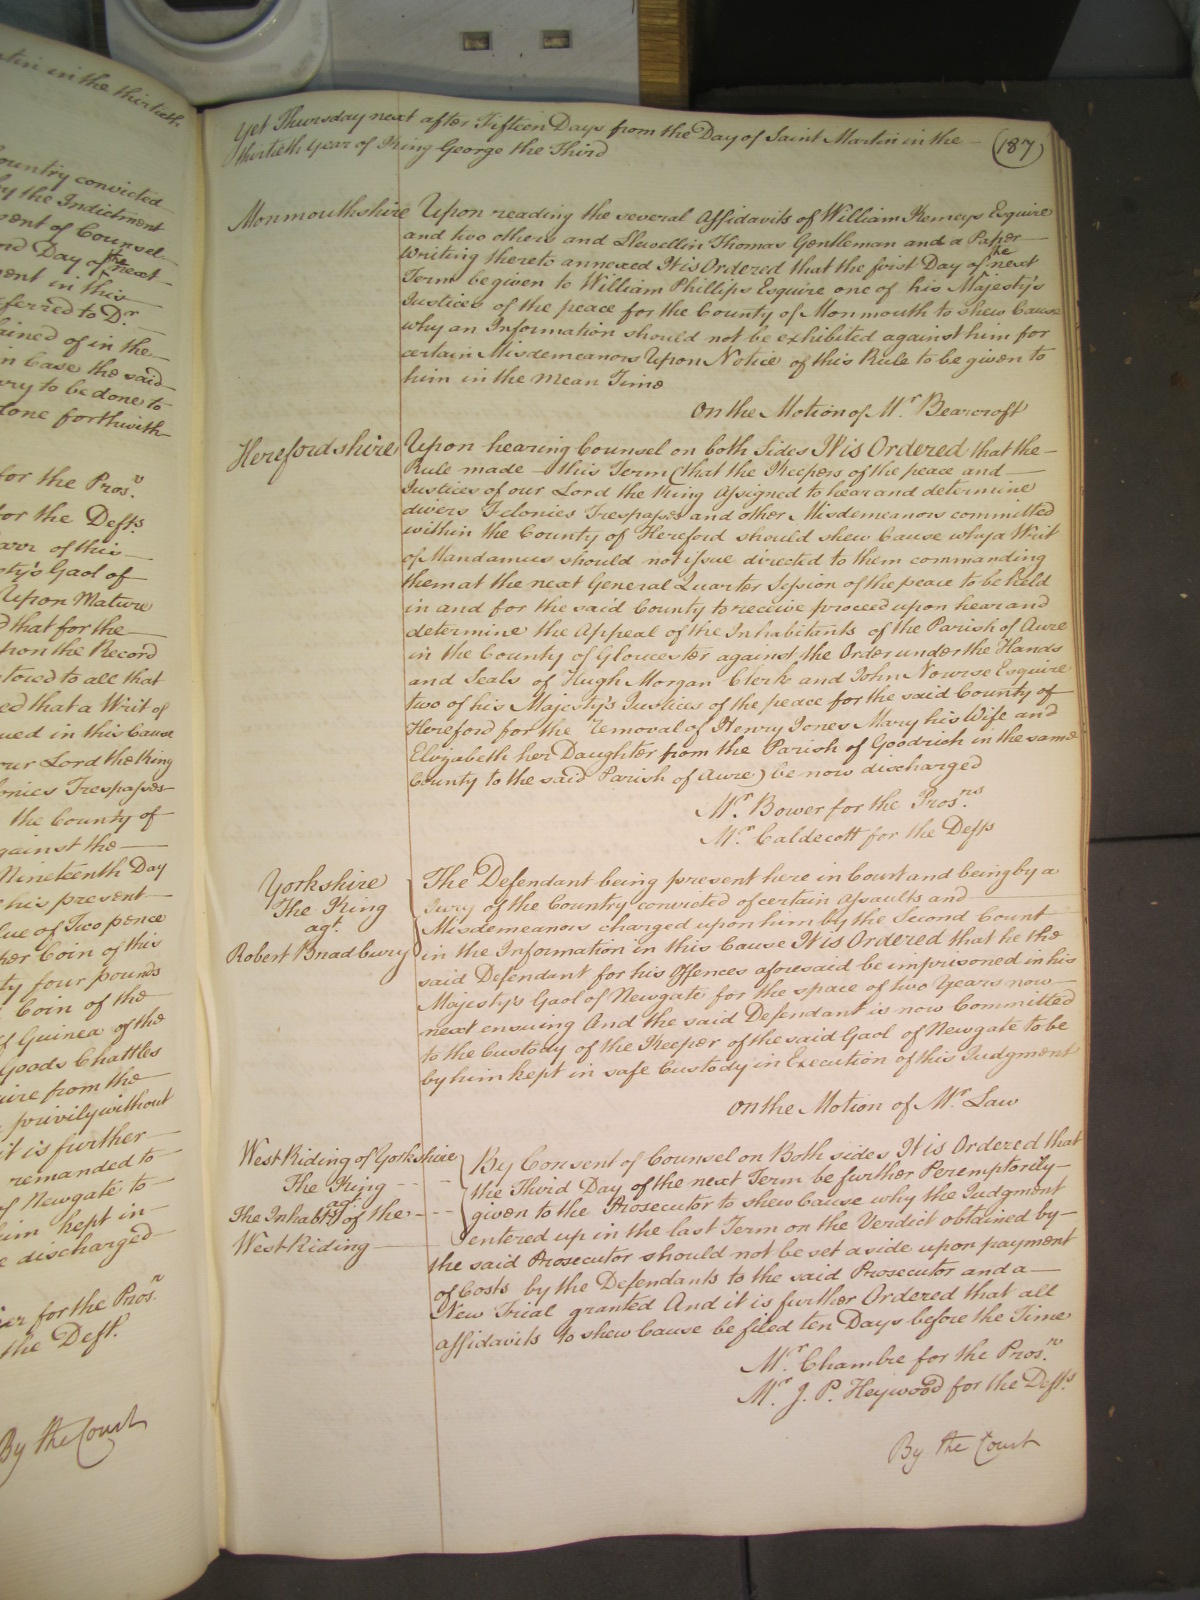 tin in the thirtieth
ountry convicted
by the Indictment
ment of Counsel
nd Day of the next
ment in this
ferred to Dr.
ained of in the
n Case the said
ry to be done to
done forthwith
for the Prosr.
for the Defts
arr of this
sty's Gaol of
Upon Mature
d that for the
pon the Record
tored to all that
ed that a Writ of
ued in this Cause
our Lord the King
onies Trespasses
the County of
gainst the
Nineteenth Day
this present
lue of Two pence
her Coin of this
ty four pounds
Coin of the
f Guinea of the
Goods Chattles
uire from the
privily without
it is further
remanded to
of Newgate to
him kept in
e discharged
er for the Prosr.
the Deft.
By the Court
Yet Thursday next after Fifteen Days from the Day of Saint Martin in the
(187)
thirtieth year of King George the Third
Monmouthshire Upon reading the several Affidavits of William Kemeys Esquire
and two others and Llewellin Thomas Gentleman and a Paper
Writing thereto annexed It is Ordered that the first Day of the next
Term be given to William Phillips Esquire one of his Majesty's
Justices of the peace for the County of Monmouth to shew Cause
why an Information should not be exhibited against him for
certain Misdemeanors Upon Notice of this Rule to be given to
him in the mean Time
On the Motion of Mr. Bearcroft
Herefordshire Upon hearing Counsel on both Sides It is Ordered that the
Rule made this Term (that the Keepers of the peace and
Justices of our Lord the King Assigned to hear and determine
divers Felonies Trespasses and other Misdemeanors committed
within the County of Hereford should shew Cause why a Writ
of Mandamus should not issue directed to them commanding
them at the next General Quarter Session of the peace to be held
in and for the said County to receive proceed upon hear and
determine the Appeal of the Inhabitants of the Parish of Awre
in the County of Gloucester against the Order under the Hands
and Seals of Hugh Morgan Clerk and John Nourse Esquire
two of his Majesty's Justices of the peace for the said County of
Hereford for the removal of Henry Jones Mary his Wife and
Elizabeth her Daughter from the Parish of Goodrich in the same
County to the said Parish of Awre) be now discharged
Mr. Bower for the Prosrs.
Mr. Caldecott for the Defts
Yorkshire
The King
agt.
Robert Bradbury
The Defendant being present here in Court and being by a
Jury of the Country convicted of certain Assaults and
Misdemeanors charged upon him by the Second Count
in the Information in this Cause It is Ordered that he the
said Defendant for his Offences aforesaid be imprisoned in his
Majesty's Gaol of Newgate for the space of two Years now
next ensuing And the said Defendant is now Committed
to the Custody of the Keeper of the said Gaol of Newgate to be
by him kept in safe Custody in Execution of this Judgment
On the Motion of Mr. Law
West Riding of Yorkshire
The King
agt.
The Inhabts. of the
West Riding
By Consent of Counsel on Both sides It is Ordered that
the Third Day of the next Term be further Peremptorily
given to the Prosecutor to shew Cause why the Judgment
entered up in the last Term on the Verdict obtained by
the said Prosecutor should not be set aside upon payment
of Costs by the Defendants to the said Prosecutor and a
New Trial granted And it is further Ordered that all
affidavits to shew Cause be filed ten Days before the Time
Mr. Chambre for the Prosr.
Mr. J. P. Heywood for the Defts.
By the Court